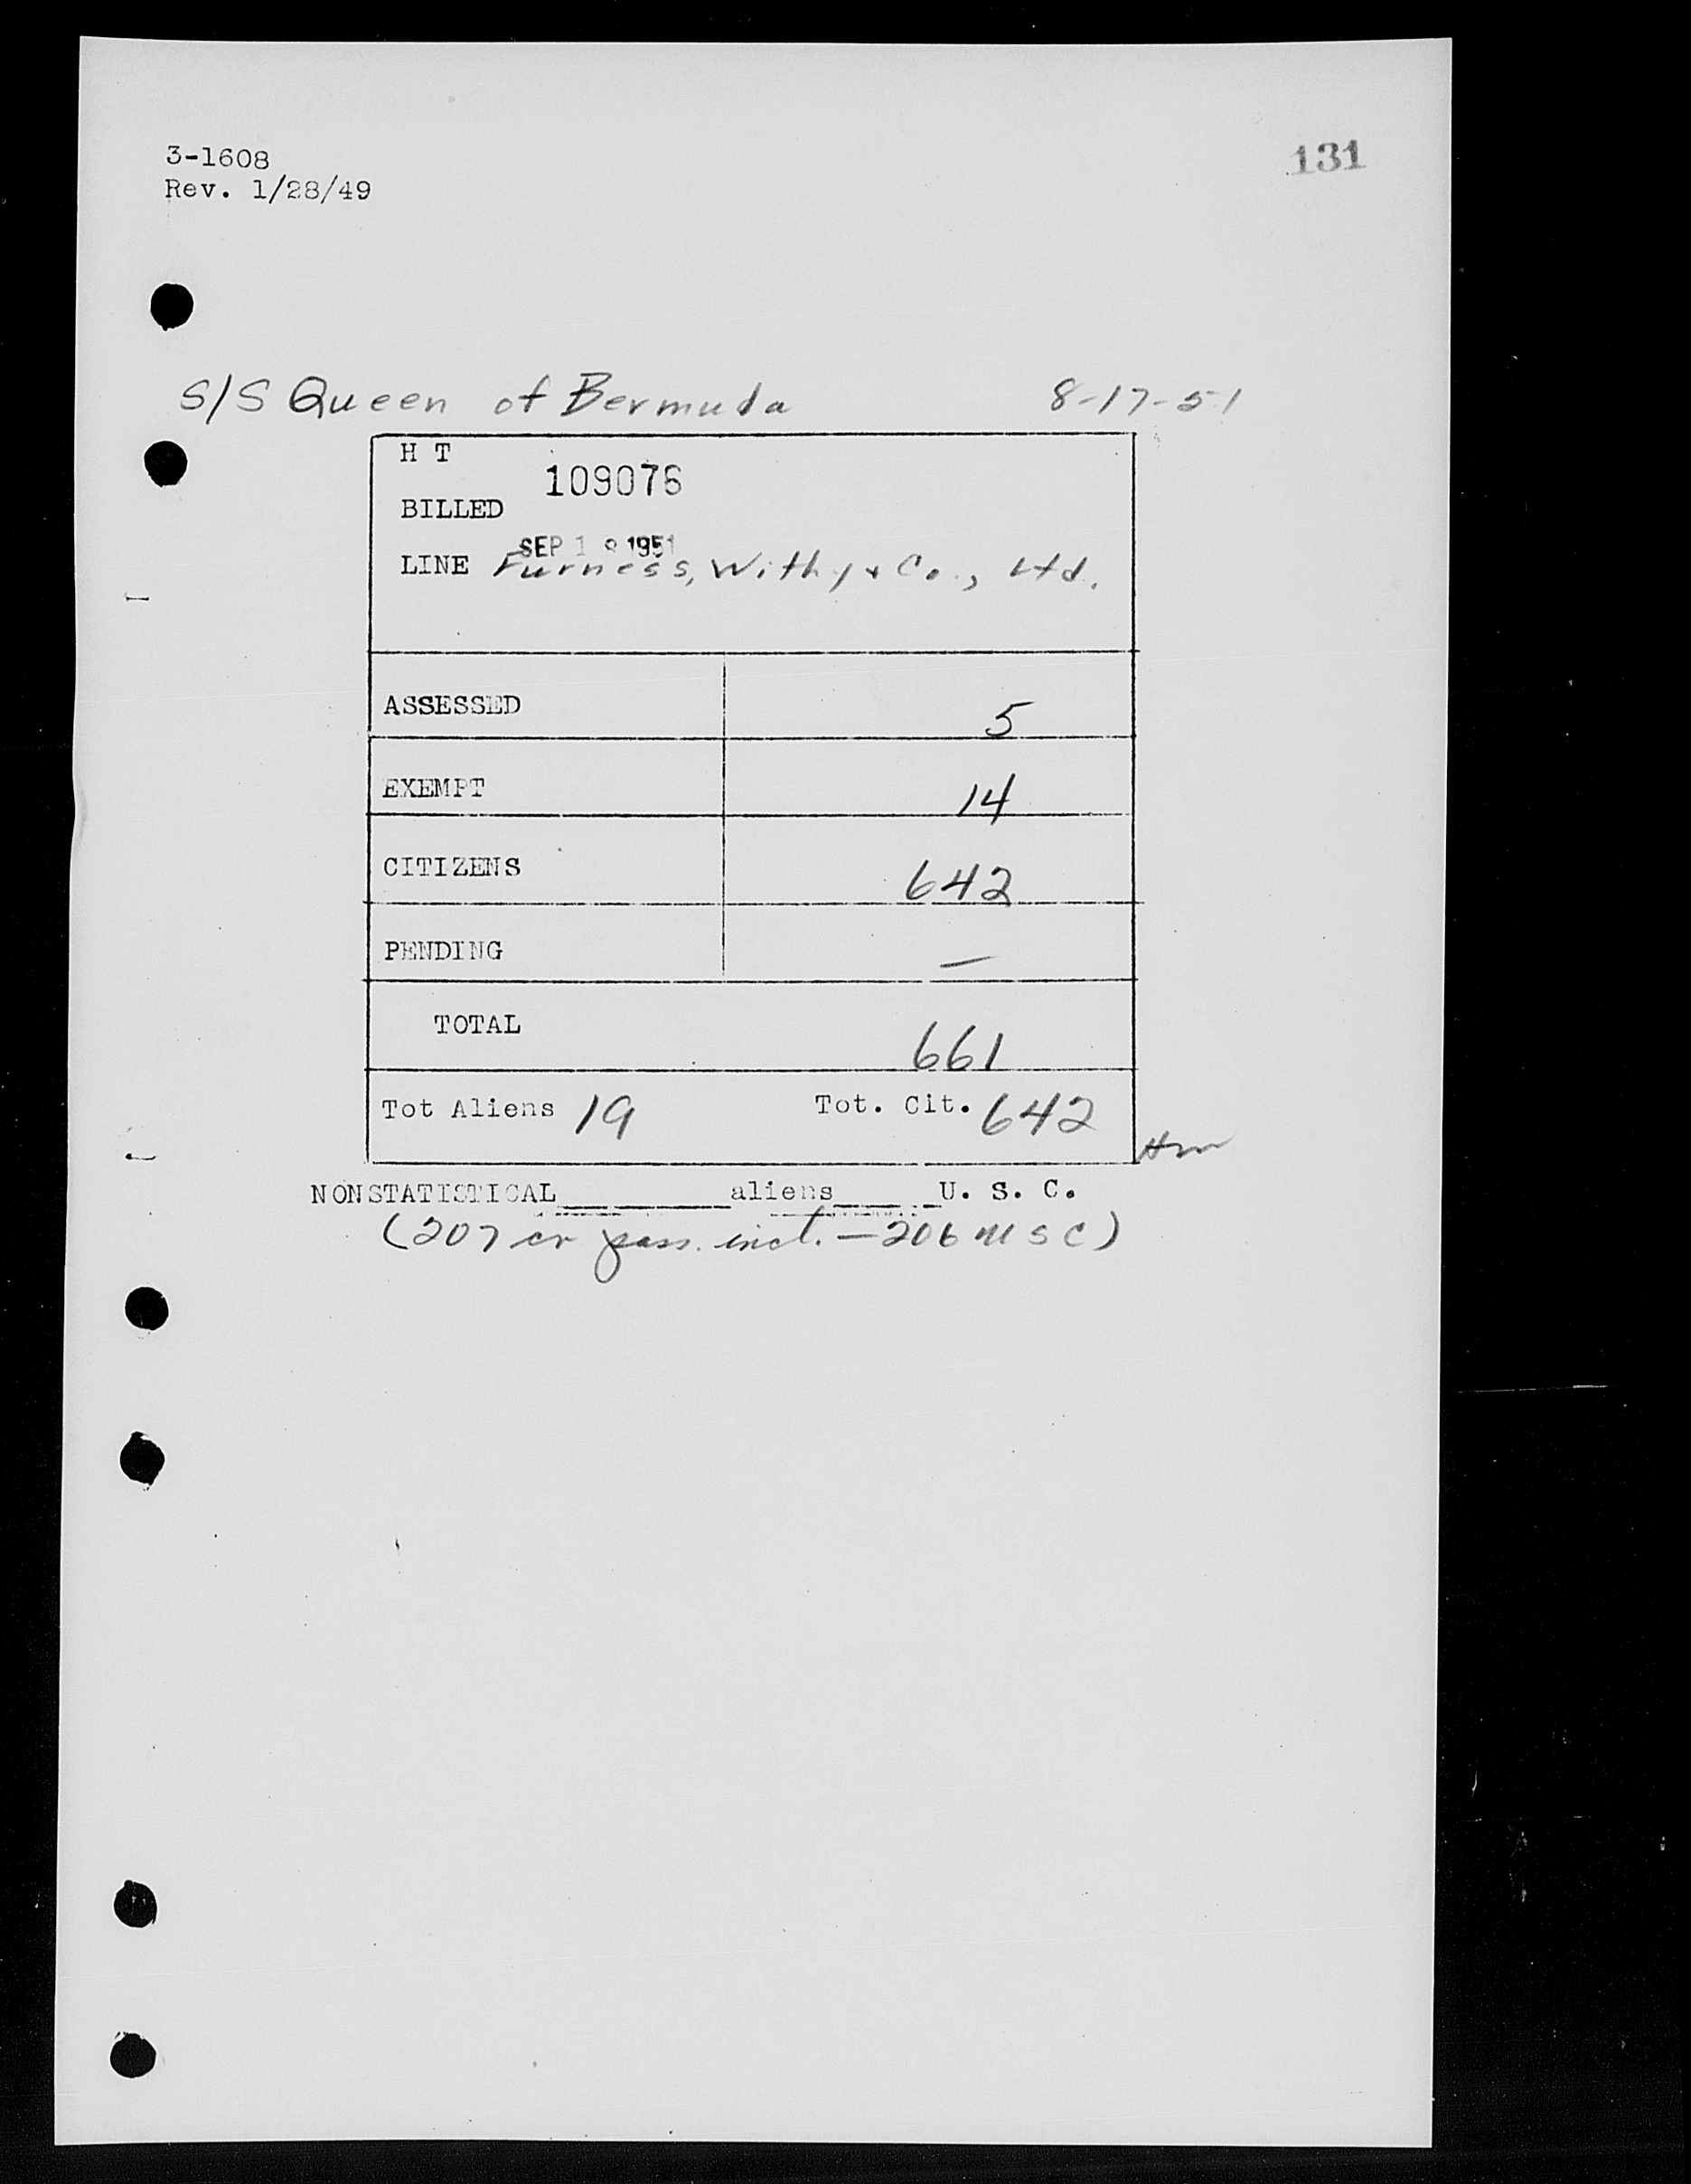 3-1608
131
Rev. 1/28/49
S/S Queen of Bermuda 8-17-51
H T
109076
BILLED
SEP 1 9 1951
LINE Furness, Withy & Co., Ltd.
ASSESSED 5
EXEMPT 14
CITIZENS 642
PENDING —
TOTAL 661
Tot Aliens 19 Tot. Cit. 642
NONSTATISTICAL________aliens_____U. S. C.
(207 cr pass. incl. — 206 USC)